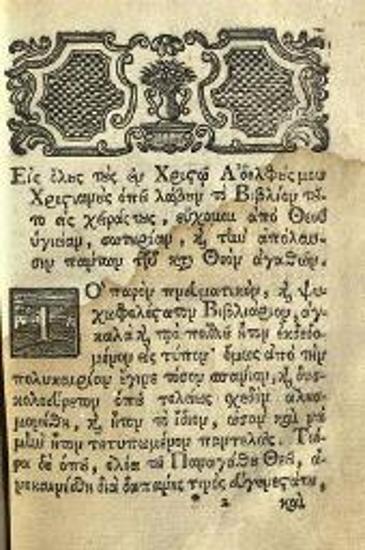 Εἰς ὅλες τὲς ἐν Χριστῷ Ἀδελφές μου
Χριστιανὲς ὁπῦ λάβῃν τὸ Βιβλίον τῦ-
το εἰς χεῖράς τες, εὔχομαι ἀπὸ Θεοῦ
ὑγιείαν, σωτηρίαν, ϗ τὴν ἀπόλαυ-
σιν πάντων τῶν κατὰ Θεὸν ἀγαθῶν.
ΤΟ παρὸν πνευματικὸν, ϗ ψυ-
χωφελέςατον Βιβλιάριον, ἀγ-
καλὰ ϗ πρὸ πολλῦ ἦτον ἐκδεδο-
μένον εἰς τύπον· ὅμως ἀπὸ τὴν
πολυκαιρίαν ἔγινε τόσον σπάνιον, ϗ δυσ-
κολοεύρετον ὁπῦ τελείως σχεδὸν ἀλησ-
μονήθη, ϗ ἦτον τὸ ἴδιον, ὡσὰν καὶ νὰ
μὴν ἦτον τετυπωμένον παντελῶς. Τώ-
ρα δὲ ὁπῦ, ἐλέει τῦ Παναγάθυ Θεῦ, ἀ-
νεκαινίσθη διὰ δαπάνης τινὸς εὐγενεςάτυ,
* 2 καὶ